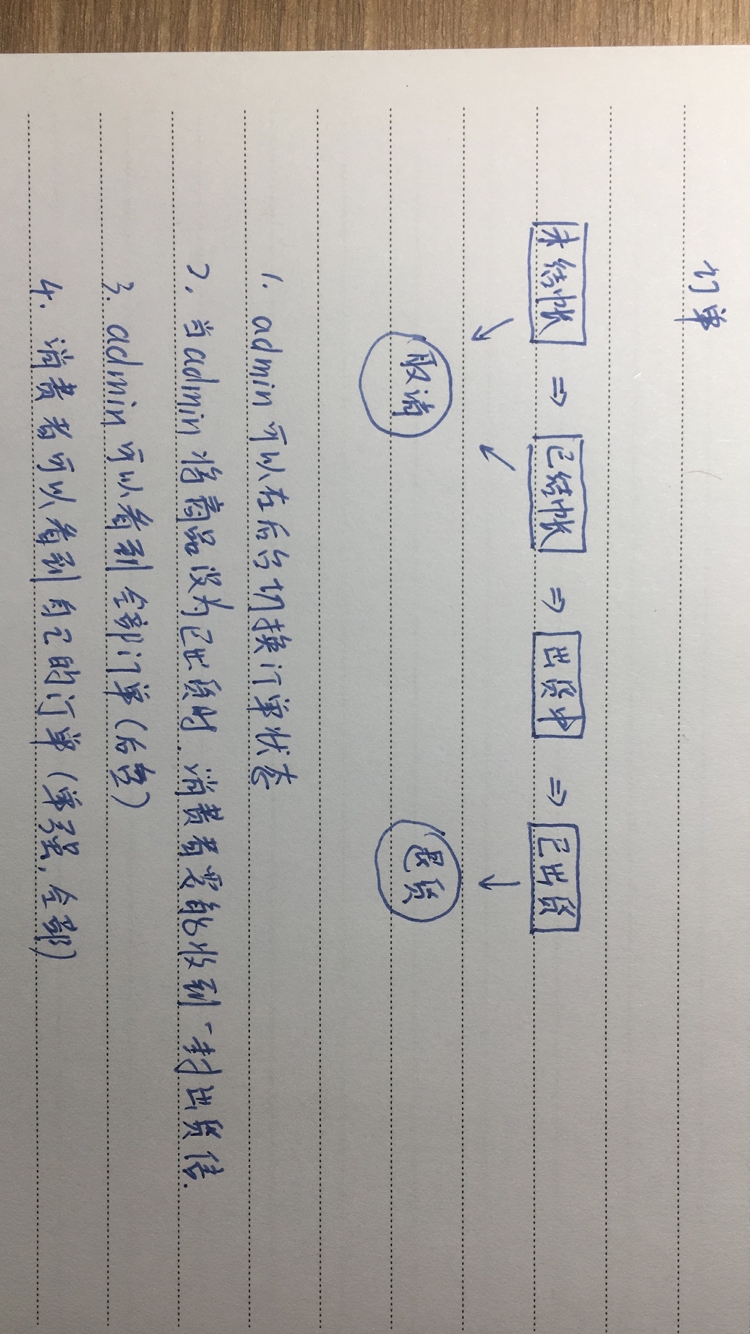 订单
未结帐 ⇒ 已结帐 ⇒ 出货中 ⇒ 已出货
↘ ↙ ↓
取消 退货
1. admin 可以在后台切换订单状态
2. 当admin 将商品设为已出货时,消费者要能收到一封出货信.
3. admin 可以看到全部订单(后台)
4. 消费者可以看到自己的订单(单张,全部)